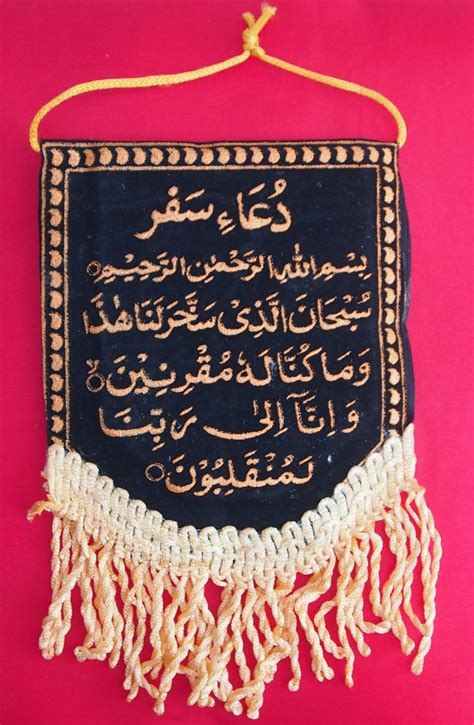 دُعَاءِ سَفَر
بِسْمِ اللهِ الرَّحْمٰنِ الرَّحِيْمِ ○
سُبْحَانَ الَّذِیْ سَخَّرَ لَنَا هٰذَا
وَمَا كُنَّا لَهٗ مُقْرِنِيْنَ ○
وَاِنَّآ اِلٰى رَبِّنَا
لَمُنْقَلِبُوْنَ ○